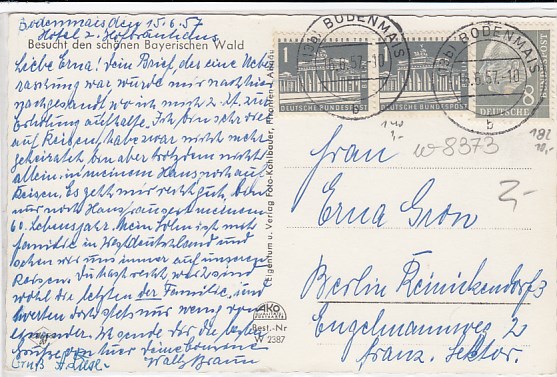 Bodenmais den 15.6.57
Hotel z. Hofbräuhaus
Besucht den schönen Bayerischen Wald
Liebe Erna! Dein Brief, der eine Ueber
raschung war wurde mir nach hier
nachgesandt wo ich mich z. Zt. zur
Erholung aufhalte. Ich bin sehr viel
auf Reisen, habe zwar nicht mehr
geheiratet bin aber trotzdem nicht
allein in meinem Haus noch auf
Reisen. Es geht mir recht gut, bin
nur noch Hausfrau
60. Lebensjahr. Mein Sohn ist mit
Familie in Westdeutschland und
sehen wir uns immer auf unseren
Reisen. Du hast recht, wir sind
wohl die letzten der Familie, und
hörten doch stets nur wenig von
einander. Wo
Gruß
(Eigentum u. Verlag Foto-Kohlbauer, Pfronten i. Allgäu
AKO
Best.-Nr
W 2387
(13b) BODENMAIS
15.6.57.-10
b
(13b) BODENMAIS
15.6.57.-10
b
1
DEUTSCHE BUNDESPOST
1
DEUTSCHE BUNDESPOST
8
DEUTSCHE BUNDESPOST
W 8373
2,-
Frau
Erna Gron
Berlin Reinickendorf 3
Engelmannweg 2
franz. Sektor.